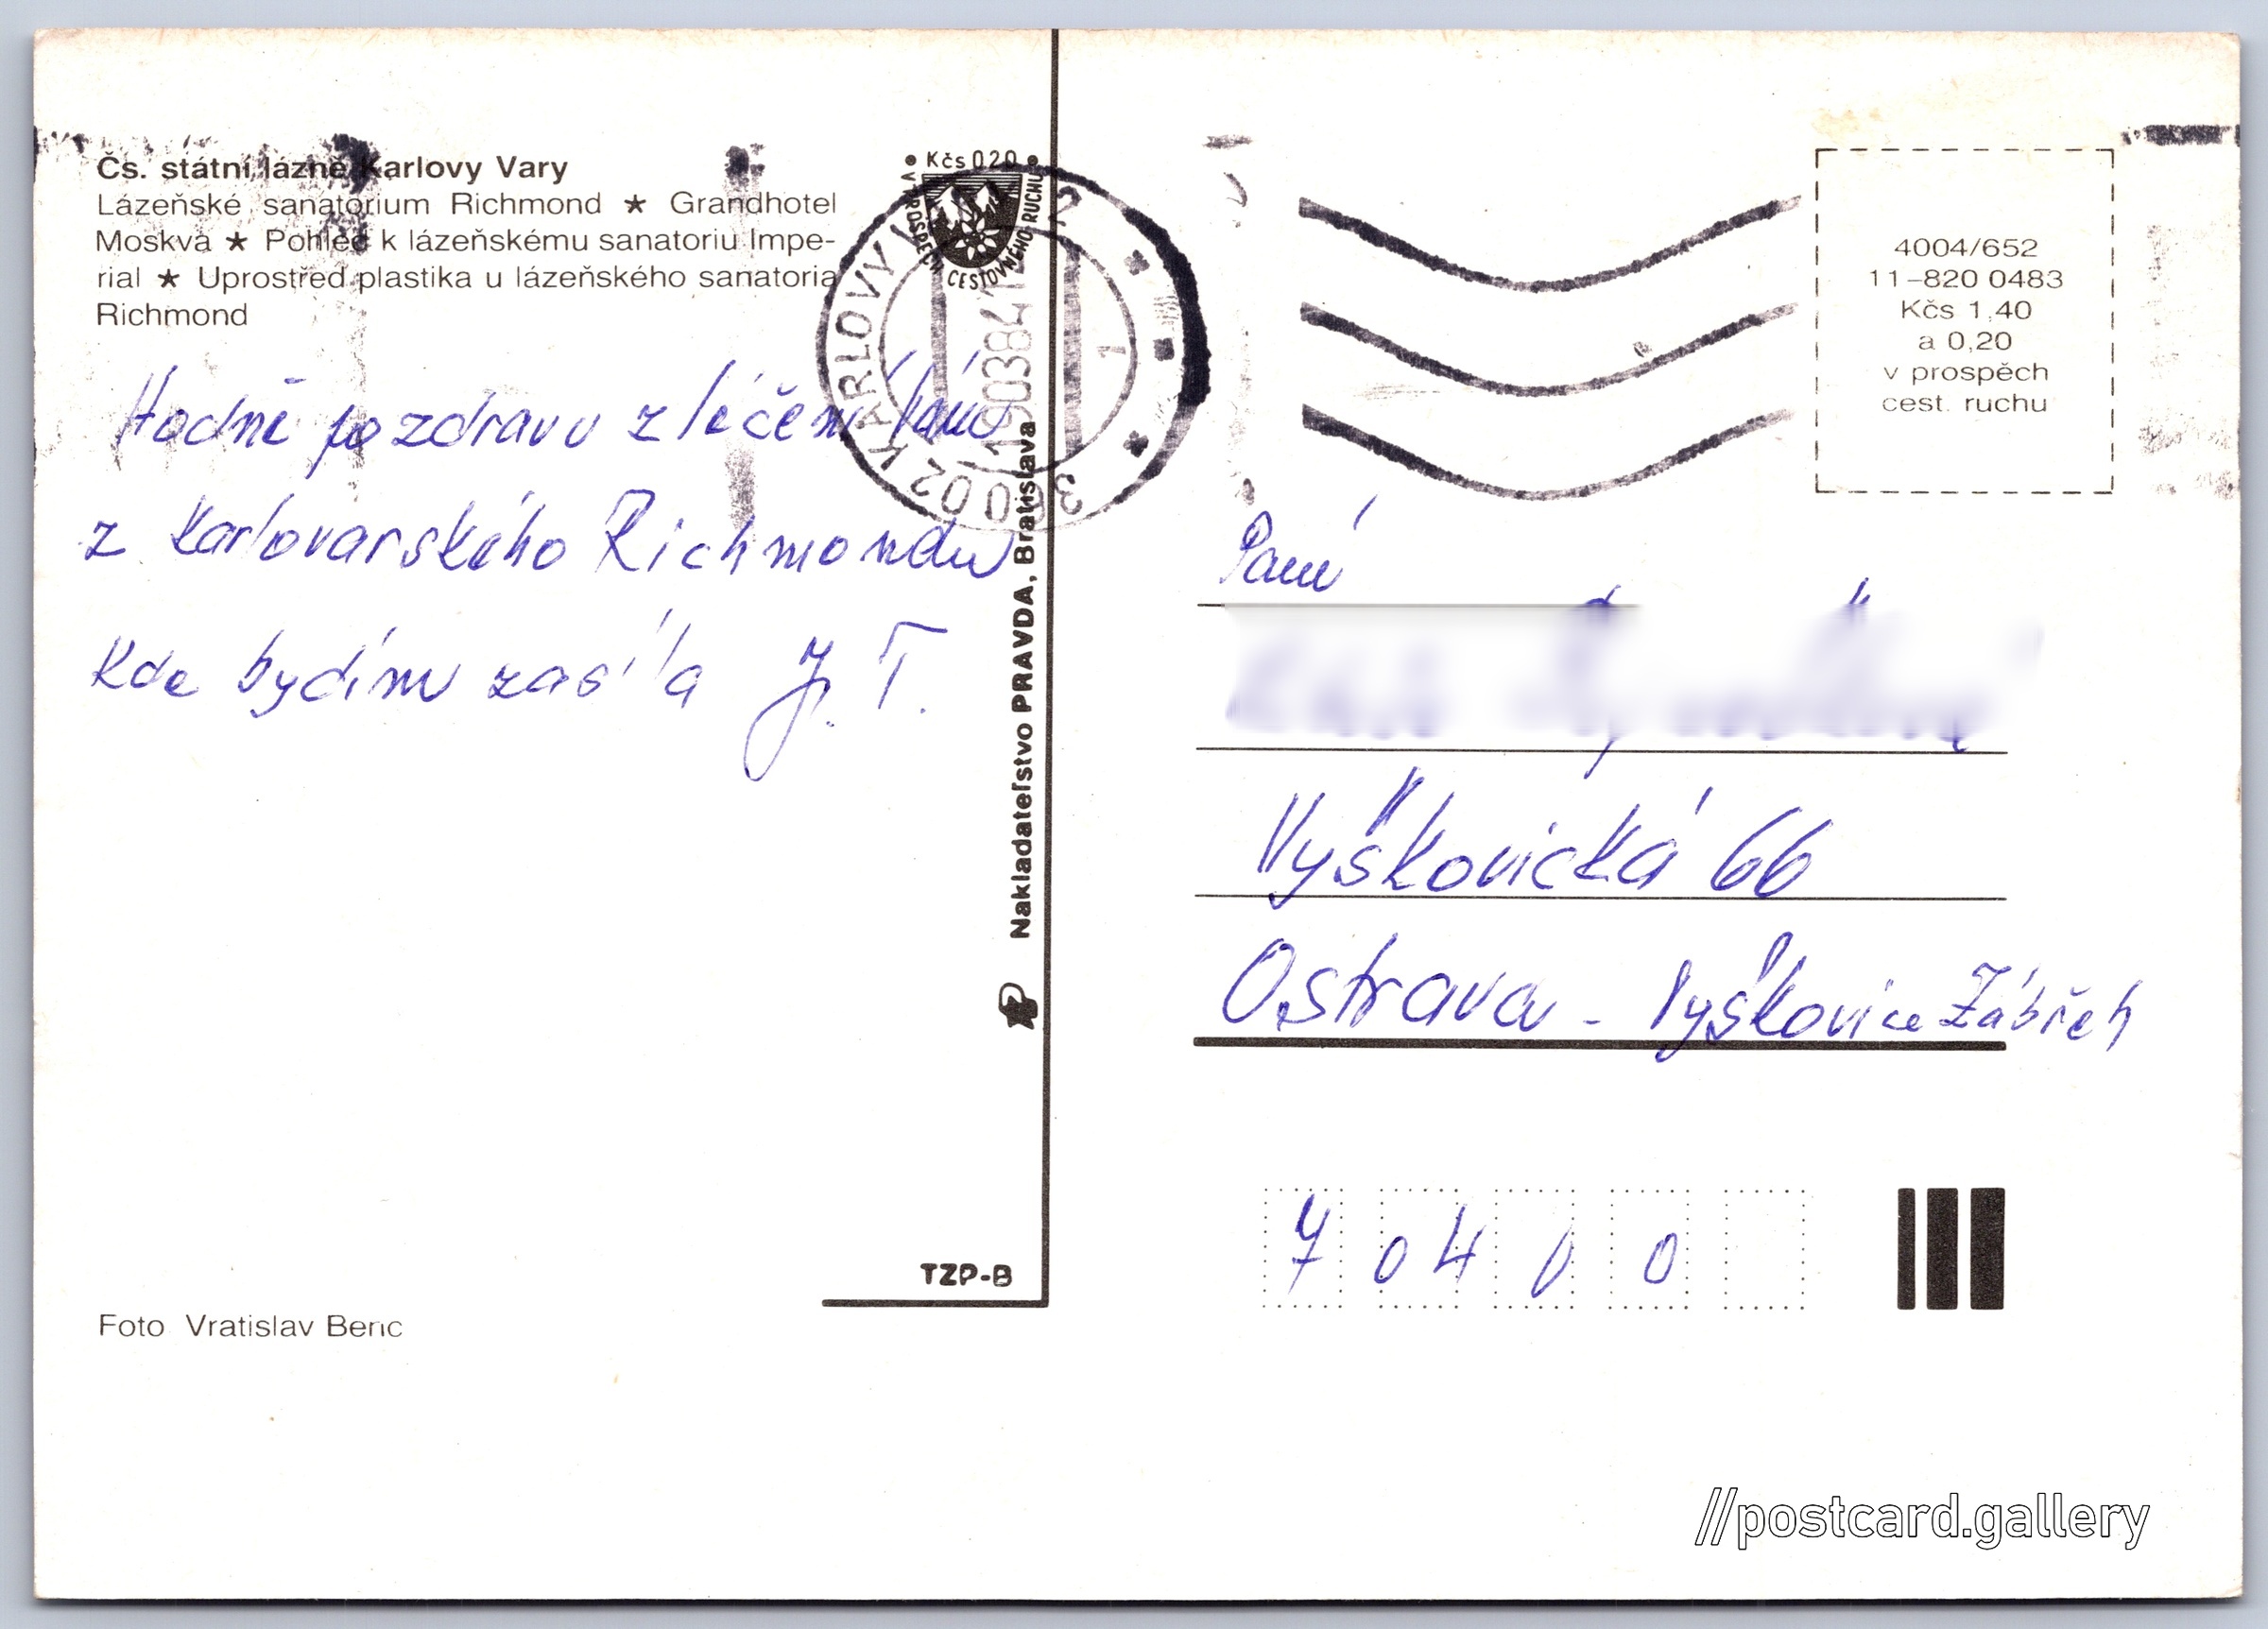 Čs. státní lázně Karlovy Vary
Lázeňské sanatórium Richmond ★ Grandhotel
Moskva ★ Pohled k lázeňskému sanatoriu Impe-
rial ★ Uprostřed plastika u lázeňského sanatoria
Richmond
Hodně pozdravu z léčení
z Karlovarského Richmondu
Kde bydlím zasílá J. T.
Foto Vratislav Benc
TZP-B
Nakladateľstvo PRAVDA, Bratislava
Kčs 0,20
V PROSPĚCH CESTOVNÉHO RUCHU
360 02 KARLOVY VARY 2
190384
1
4004/652
11-820 0483
Kčs 1,40
a 0,20
v prospěch
cest. ruchu
Paní
Vyškovická 66
Ostrava - Vyškovice Zábřeh
704 00
//postcard.gallery